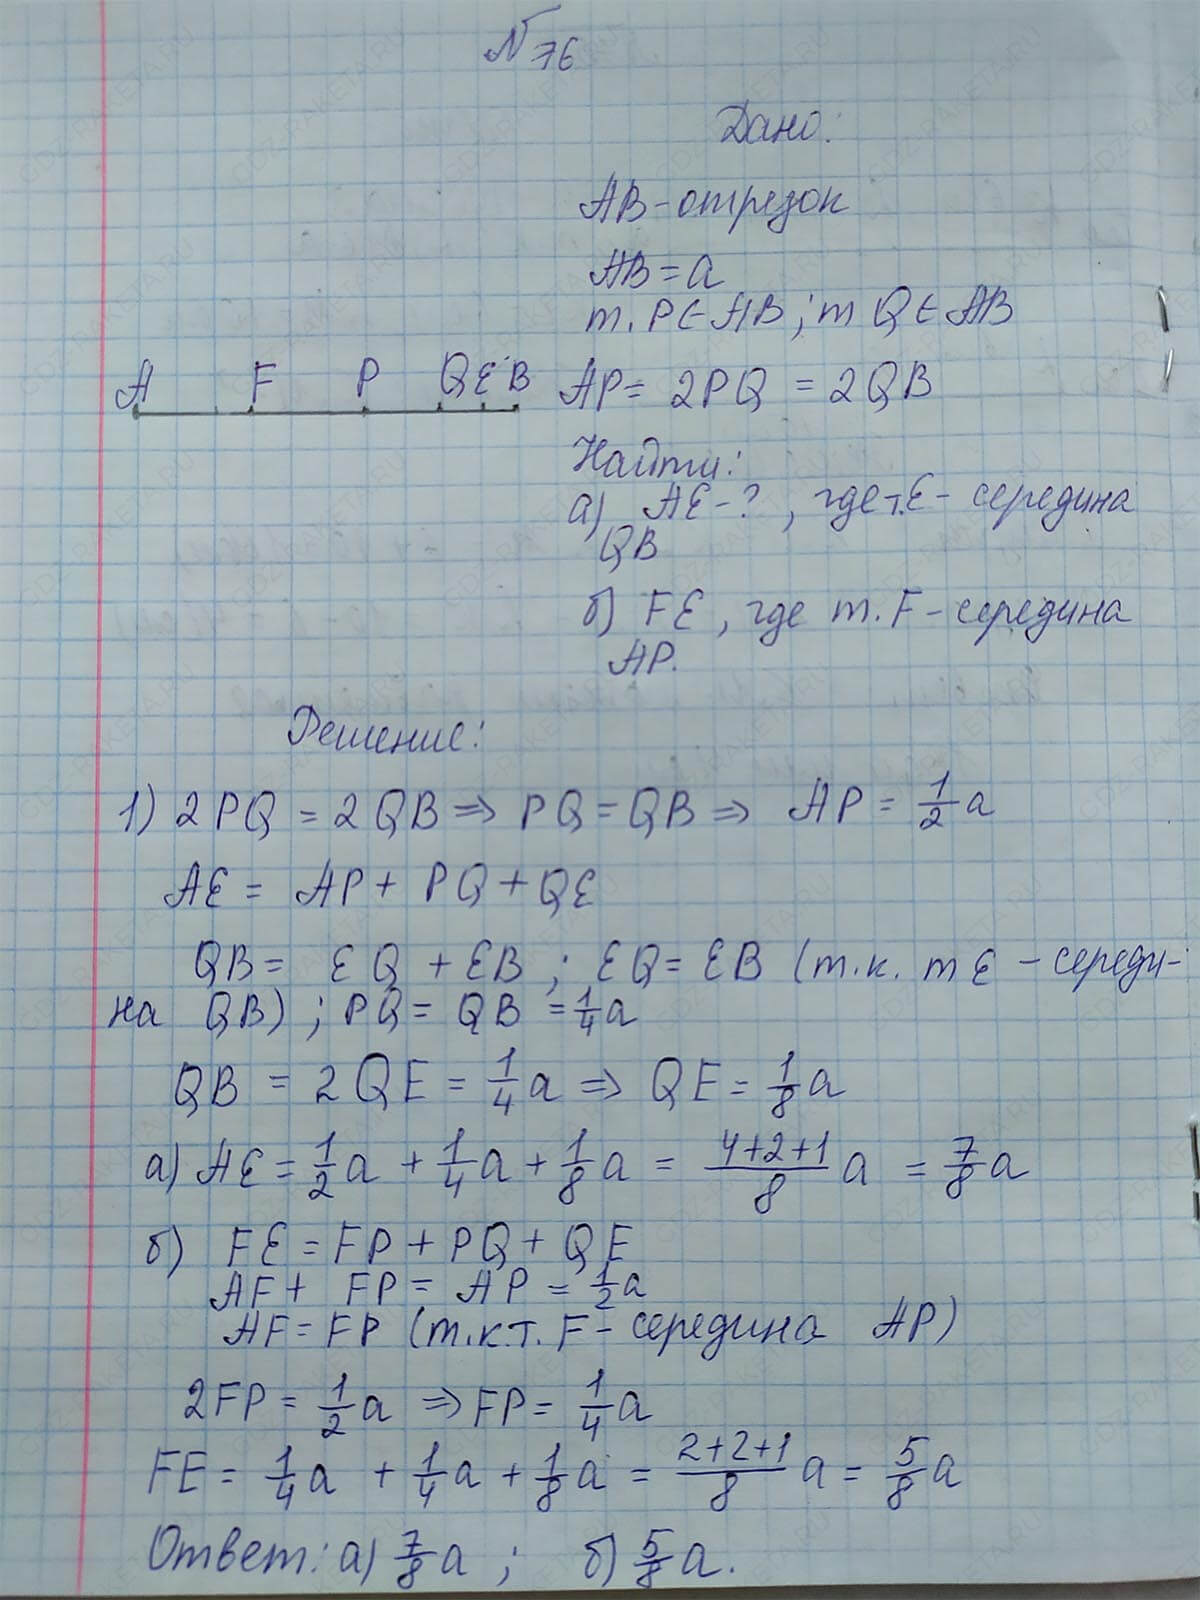 №76
Дано:
АВ-отрезок
АВ=а
т.Р∈АВ; т Q∈АВ
A F P Q E B
АР= 2PQ = 2QB
Найти:
а) АЕ-?, где т.Е- середина
QB
б) FE, где т.F-середина
АР.
Решение:
1) 2PQ = 2QB ⇒ PQ=QB ⇒ AP = 1/2 a
AE = AP + PQ + QE
QB = EQ + EB ; EQ = EB (т.к. т E - середи-
на QB) ; PQ = QB = 1/4 a
QB = 2QE = 1/4 a ⇒ QE = 1/8 a
а) AE = 1/2 a + 1/4 a + 1/8 a = (4+2+1)/8 a = 7/8 a
б) FE = FP + PQ + QE
AF + FP = AP = 1/2 a
AF = FP (т.к.т. F - середина AP)
2FP = 1/2 a ⇒ FP = 1/4 a
FE = 1/4 a + 1/4 a + 1/8 a = (2+2+1)/8 a = 5/8 a
Ответ: а) 7/8 a ; б) 5/8 a.